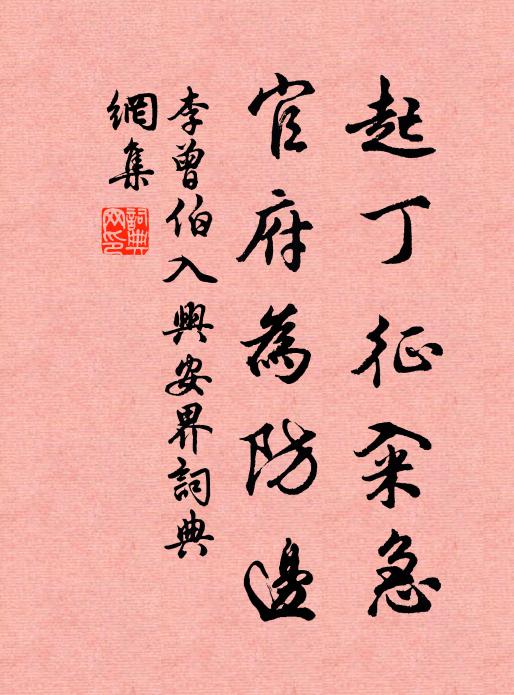 起丁征籴急
官府為防邊
李曾伯入興安界詞典
網集
詞典网印